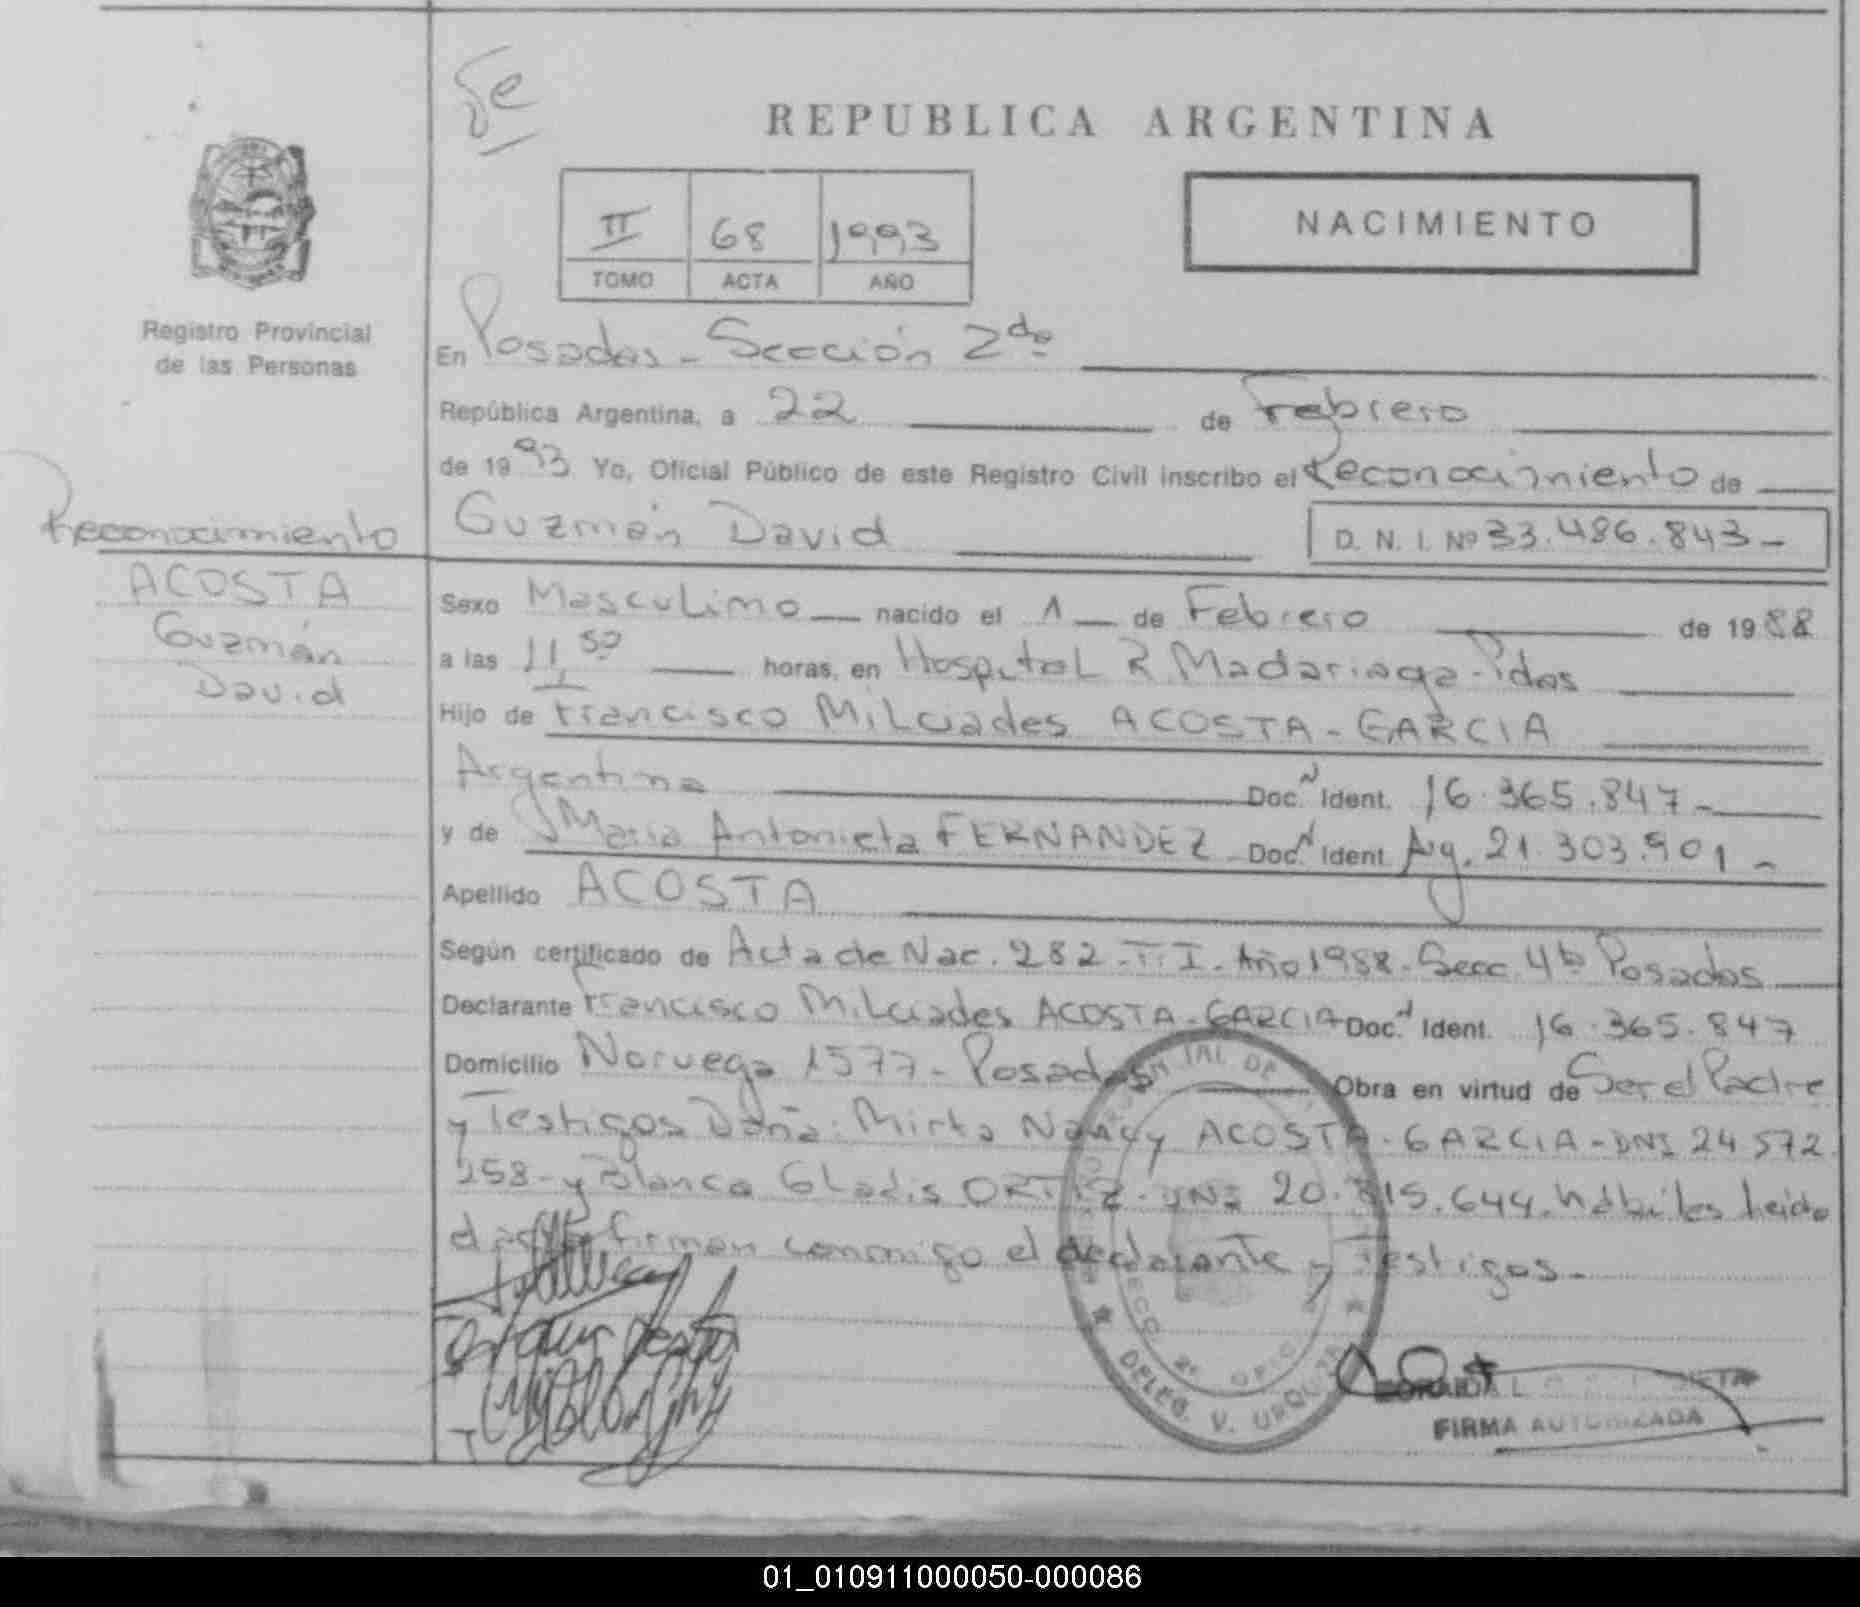 REPUBLICA ARGENTINA
II 68 1993
TOMO ACTA AÑO
NACIMIENTO
Registro Provincial
de las Personas
En Posadas - Sección 2da
República Argentina, a 22 de Febrero
de 1993 Yo, Oficial Público de este Registro Civil inscribo el Reconocimiento de
Guzmán David
D. N. I. Nº 33.486.843 -
Reconocimiento
ACOSTA
Guzmán
David
Sexo Masculino nacido el 1 de Febrero de 1988
a las 11,50 horas, en Hospital R Madariaga - Pdas
Hijo de Francisco Milciades ACOSTA - GARCIA
Argentina Doc. Ident. 16.365.847 -
y de Maria Antonieta FERNANDEZ - Doc. Ident. Arg. 21.303.901 -
Apellido ACOSTA
Según certificado de Acta de Nac. 282 - T. I - Año 1988 - Secc 4ta Posadas
Declarante Francisco Milciades ACOSTA - GARCIA Doc. Ident. 16.365.847
Domicilio Noruega 1577 - Posadas Obra en virtud de Ser el Padre
y Testigos Doña: Mirta Nancy ACOSTA - GARCIA - DNI 24 572.
258 - y Blanca Gladis ORTIZ - DNI 20.815.644. hábiles leido
el acta firman conmigo el declarante y Testigos -
DELEG. V. URQUIZA
FIRMA AUTORIZADA
01_010911000050-000086